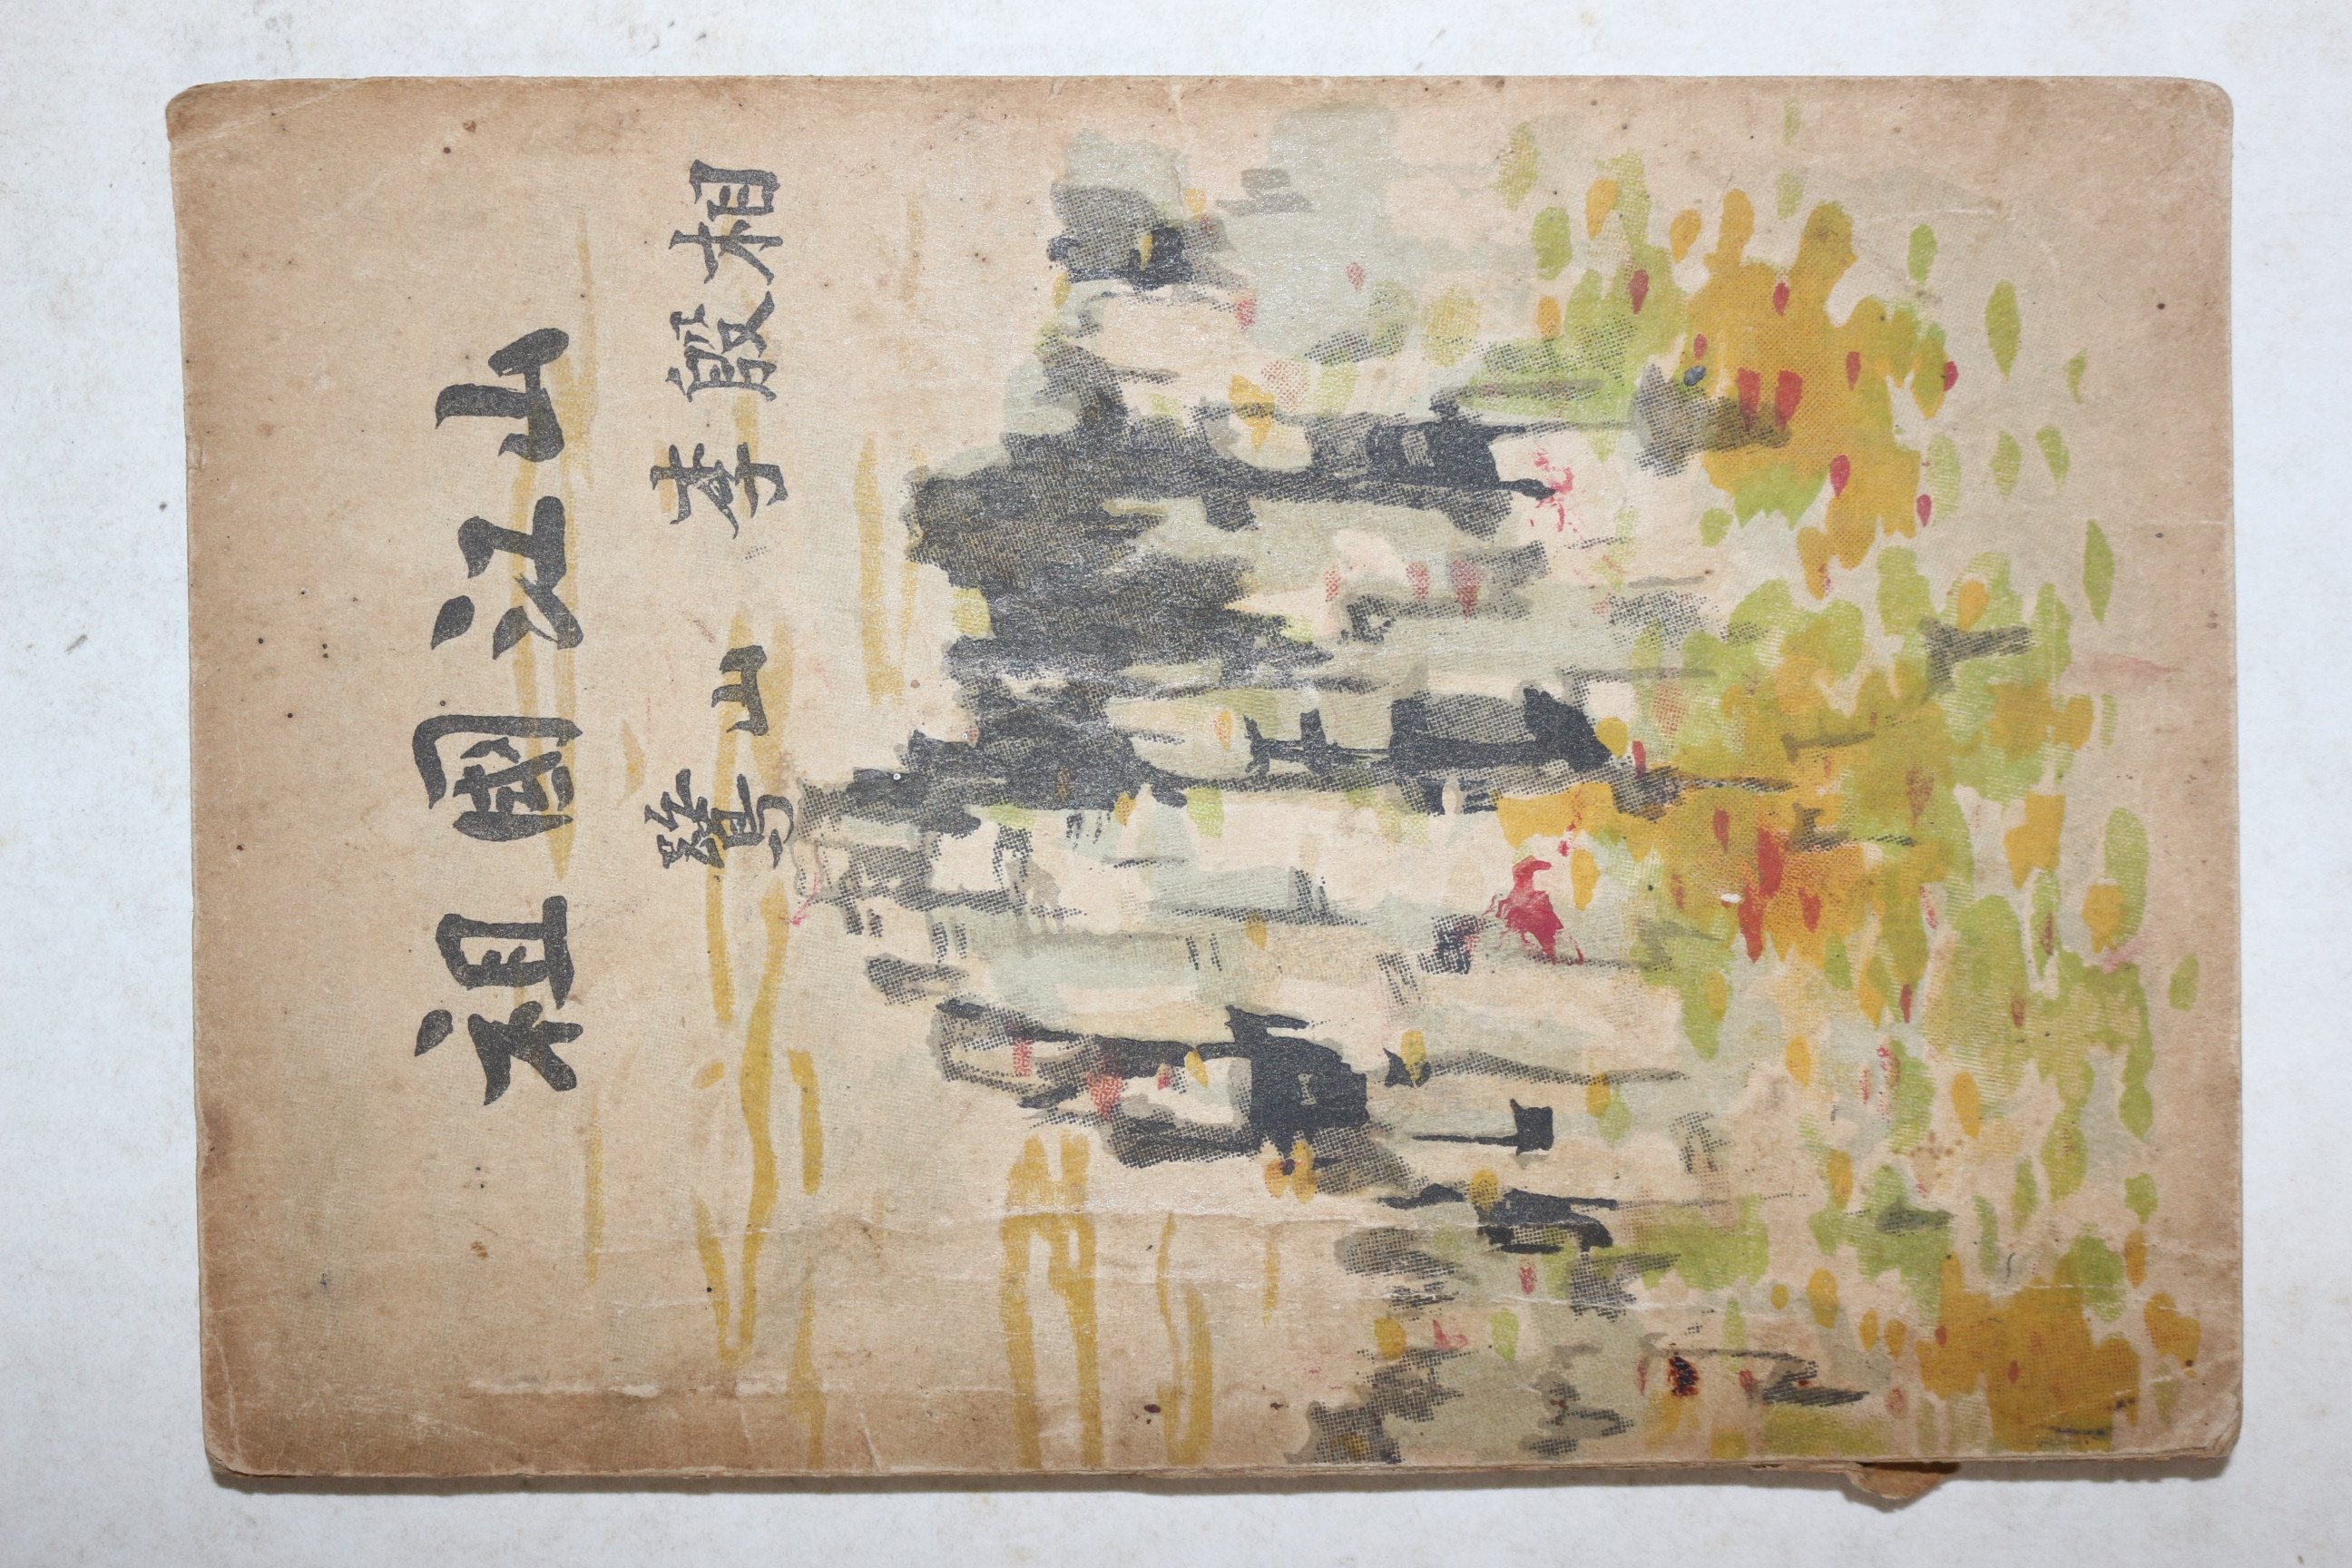 祖國江山
鷺山 李殷相